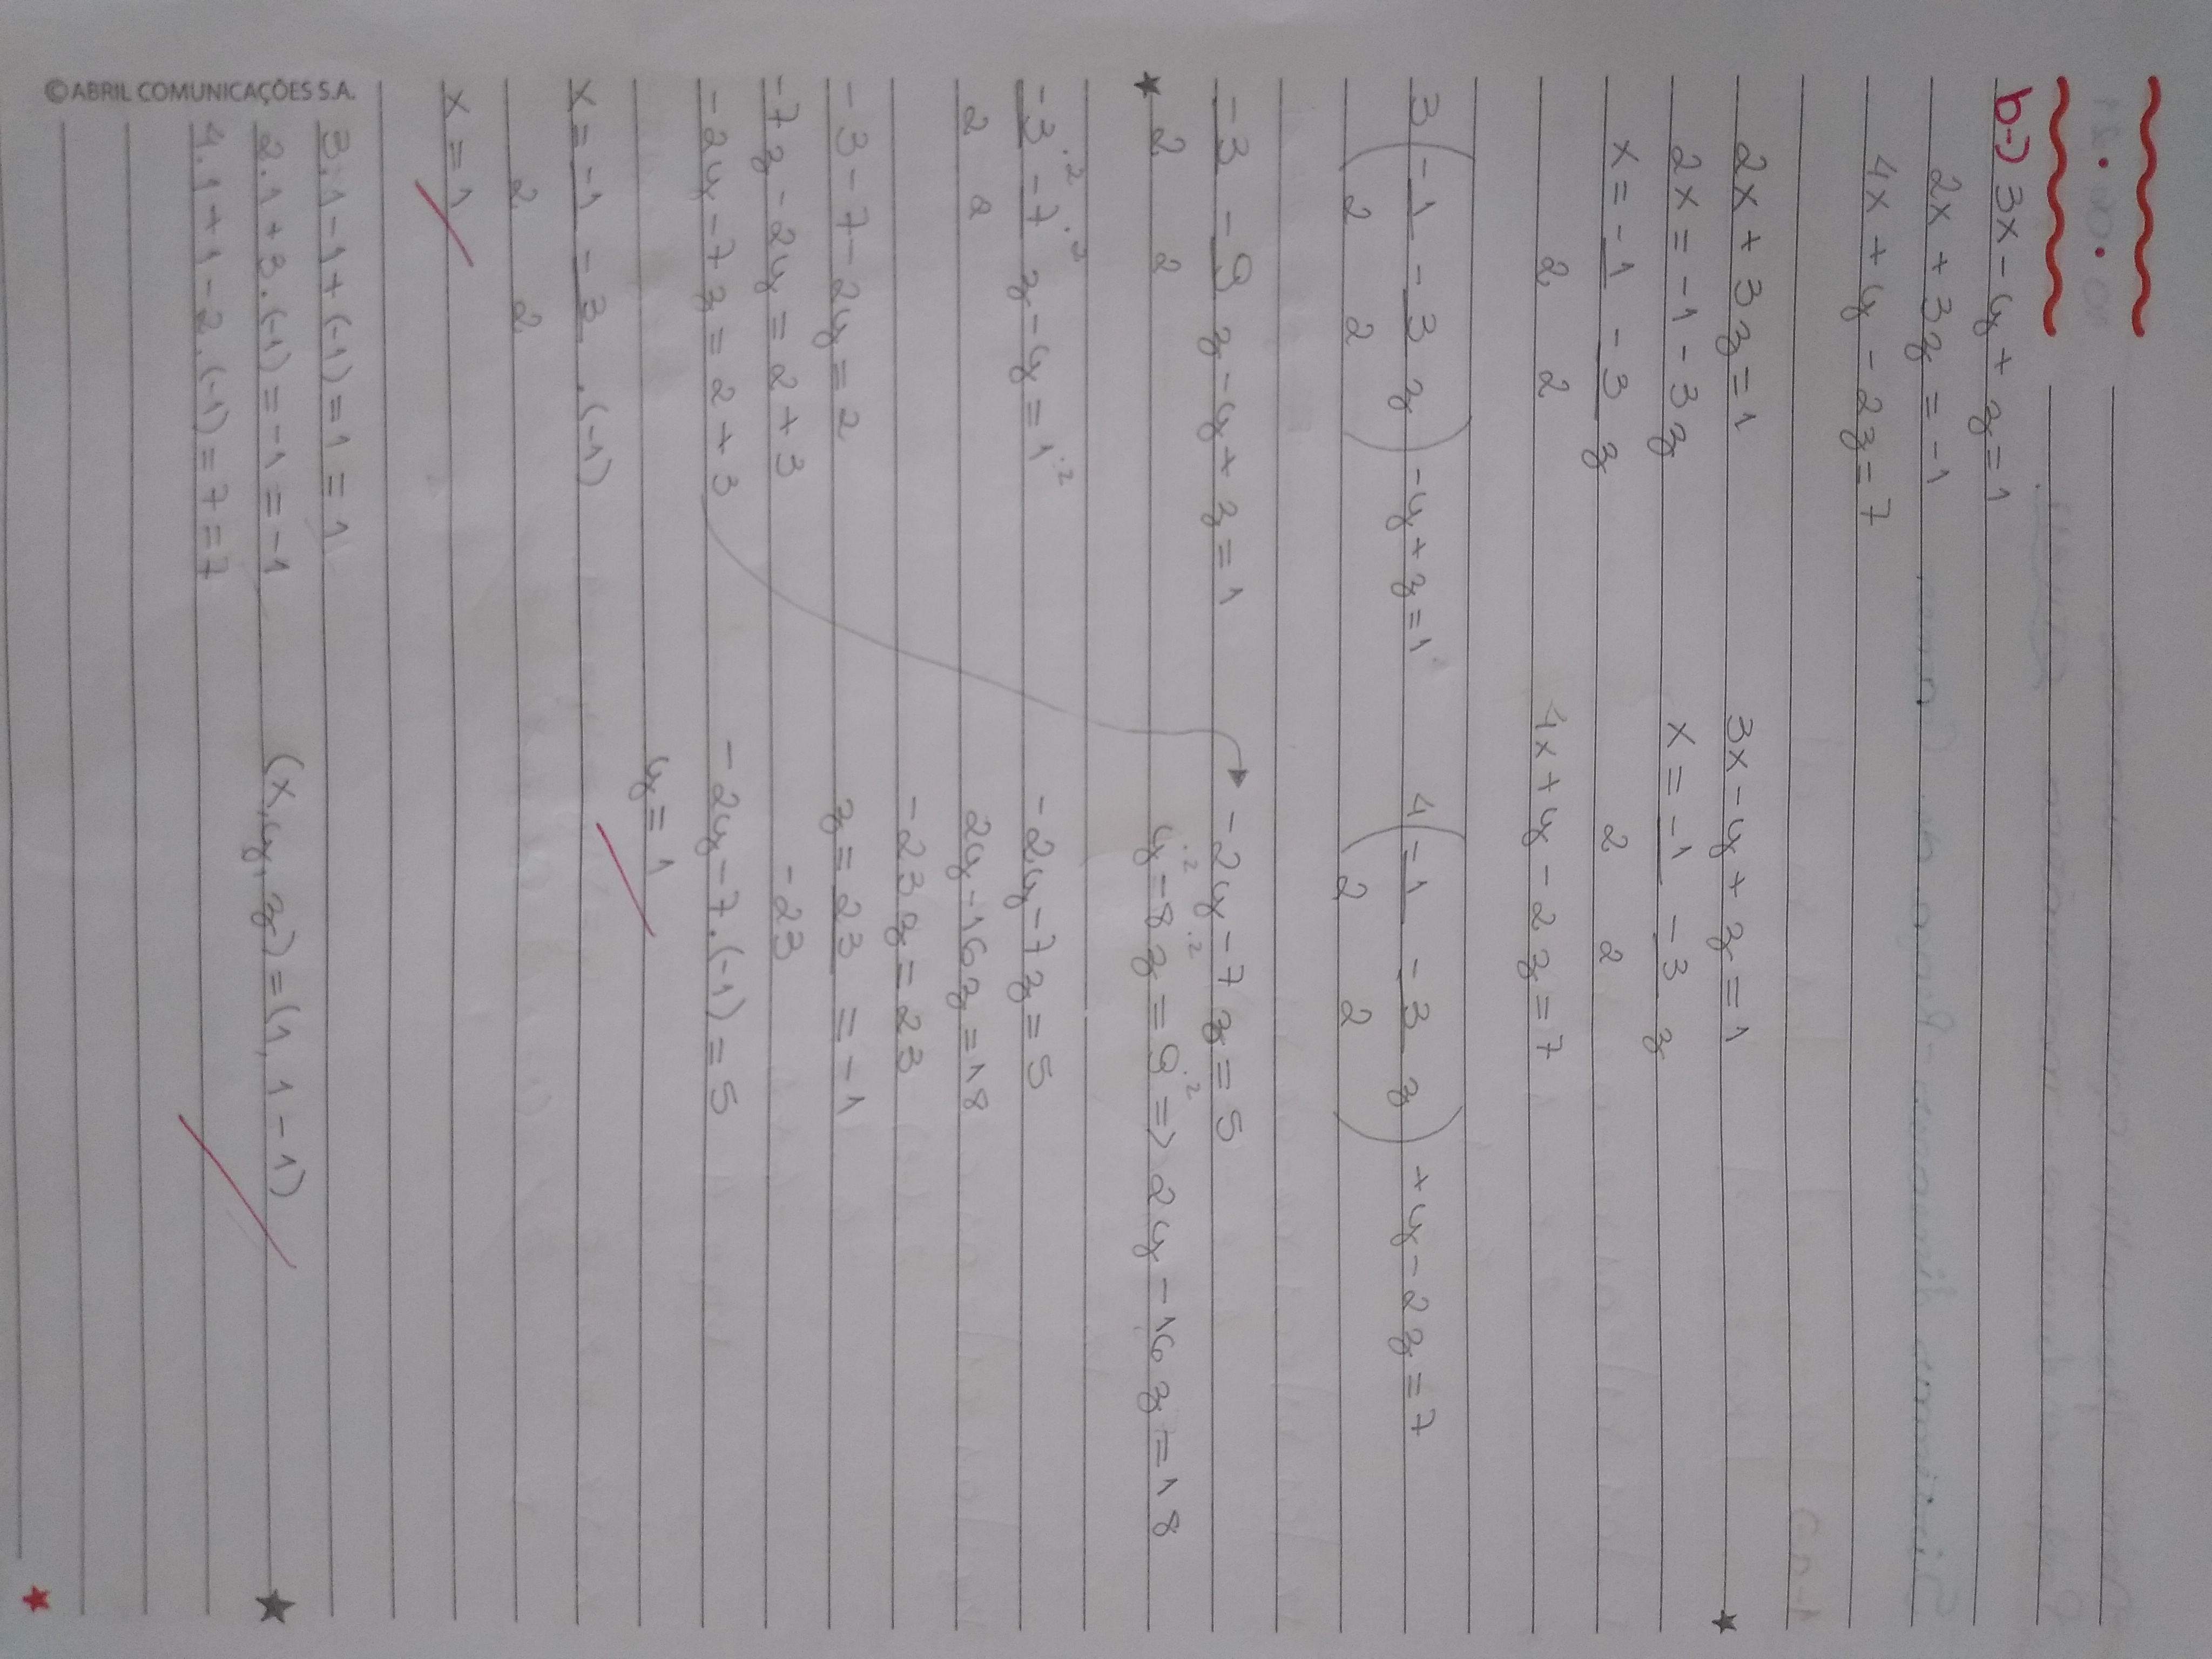 b-) 3x - y + z = 1
2x + 3z = -1
4x + y - 2z = 7
2x + 3z = 1
2x = -1 - 3z
x = -1/2 - 3/2 z
3x - y + z = 1
x = -1/2 - 3/2 z
4x + y - 2z = 7
3(-1/2 - 3/2 z) - y + z = 1
4(-1/2 - 3/2 z) + y - 2z = 7
-3/2 - 9/2 z - y + z = 1
-3/2 .2 - 7/2 .2 z - y = 1 .2
-3 - 7 - 2y = 2
-7z - 2y = 2 + 3
-2y - 7z = 2 + 3
-2y - 7z = 5
y .2 - 8z .2 = 9 .2 => 2y - 16z = 18
-2y - 7z = 5
2y - 16z = 18
-23z = 23
z = 23/-23 = -1
-2y - 7.(-1) = 5
y = 1
x = -1/2 - 3/2 .(-1)
x = 1
3.1 - 1 + (-1) = 1 = 1
2.1 + 3.(-1) = -1 = -1
4.1 + 1 - 2.(-1) = 7 = 7
(x, y, z) = (1, 1 - 1)
©ABRIL COMUNICAÇÕES S.A.